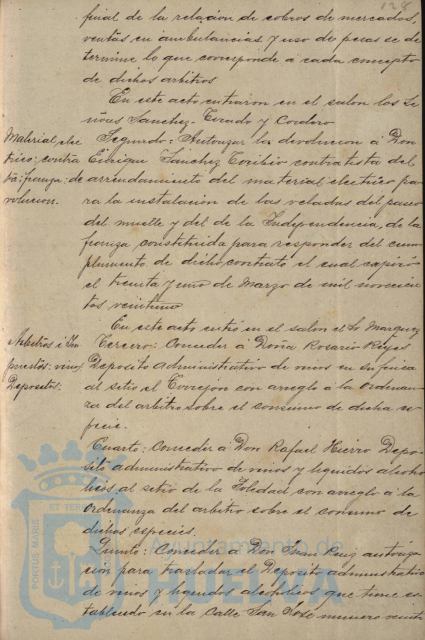 128
final de la relación de cobros de mercados,
ventas en ambulancias y uso de pesas se de
termine lo que corresponde a cada concepto
de dichos arbitrios
En este acto entraron en el salon los Se
ñores Sanchez-Tirado y Cordero
Material elec
trico: contra
ta: fianza: de
volucion.
Segundo: Autorizar la devolucion á Don
Enrique Sánchez Toribio contratista del
arrendamiento del material electrico pa
ra la instalacion de las veladas del paseo
del muelle y del de la Independencia, de la
fianza constituida para responder del cum
plimiento de dicho contrato el cual expiró
el treinta y uno de Marzo de mil novecien
tos veintiuno
En este acto entró en el salon el Sr Marquez
Arbitrios é Im
puestos: vinos
Depositos:
Tercero: Conceder á Doña Rosario Reyes
Deposito administrativo de vinos en su finca
al sitio el Torrejon con arreglo á la Ordenan
za del arbitrio sobre el consumo de dicha es
pecie.
Cuarto: Conceder á Don Rafael Hierro Depo-
sito administrativo de vinos y liquidos alcoho
licos al sitio de la Soledad con arreglo á la
Ordenanza del arbitrio sobre el consumo de
dichas especies.
Quinto: Conceder á Don Juan Ruiz autoriza
ción para trasladar el Deposito administrativo
de vinos y liquidos alcoholicos que tiene es
tablecido en la Calle San José numero veinti
PORTUS MARIS ET TERRE
Ayuntamiento de
HUELVA